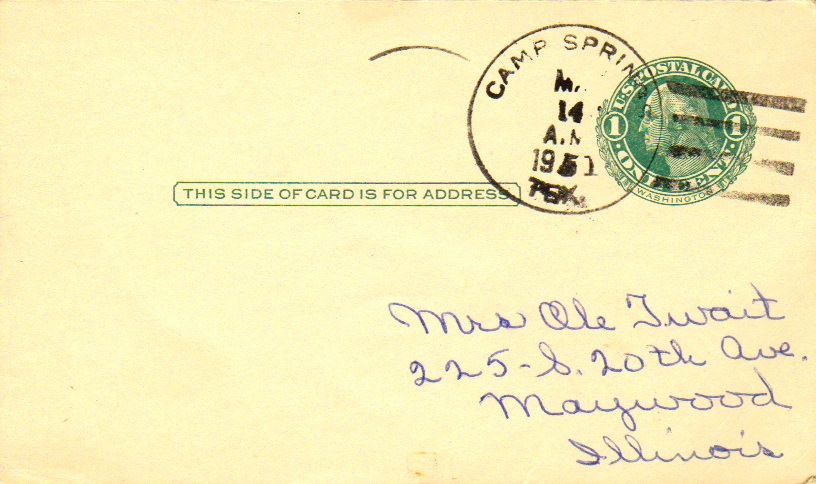 CAMP SPRINGS
14
A.M
1951
TEX.
U.S. POSTAL CARD
1 1
ONE CENT
WASHINGTON
THIS SIDE OF CARD IS FOR ADDRESS
Mrs Ole Twait
225-S. 20th Ave.
Maywood
Illinois